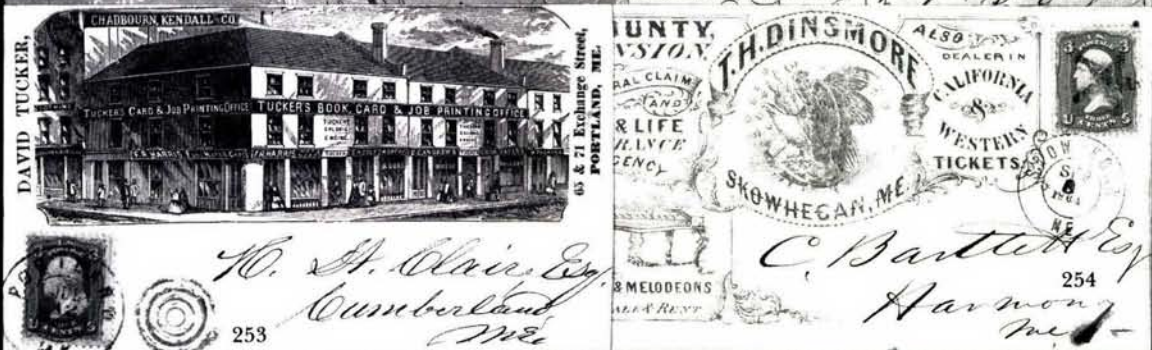 DAVID TUCKER,
CHADBOURN, KENDALL & CO.
TUCKER'S CARD & JOB PRINTING OFFICE
TUCKER'S BOOK, CARD & JOB PRINTING OFFICE
65 & 71 Exchange Street,
PORTLAND, ME.
H. St. Clair Esq
Cumberland
Me.
253
OUNTY,
NSION,
RAL CLAIM
AND
& LIFE
RANCE
GENCY
T.H. DINSMORE
SKOWHEGAN, ME.
ALSO
DEALER IN
CALIFORNIA
&
WESTERN
TICKETS
& MELODEONS
ALE & RENT
3 3
ME
C. Bartlett Esq
Harmony
Me
254